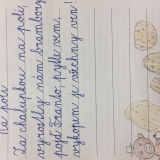 Na poli
Za chaloupkou na poli,
vyrostly nám brambory,
pojď Franto, pytle vem,
vykopem je všechny ven!